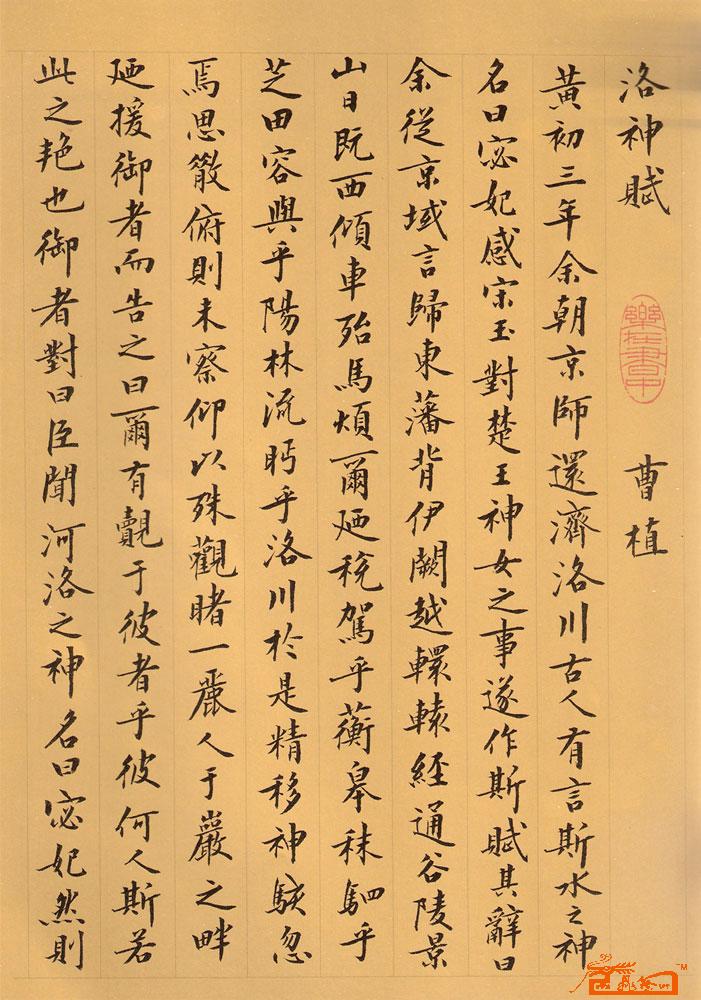 洛神賦 曹植
黃初三年余朝京師還濟洛川古人有言斯水之神
名曰宓妃感宋玉對楚王神女之事遂作斯賦其辭曰
余從京域言歸東藩背伊闕越轘轅經通谷陵景
山日既西傾車殆馬煩爾廼稅駕乎蘅皋秣駟乎
芝田容與乎陽林流眄乎洛川於是精移神駭忽
焉思散俯則未察仰以殊觀睹一麗人于巖之畔
廼援御者而告之曰爾有覿于彼者乎彼何人斯若
此之艷也御者對曰臣聞河洛之神名曰宓妃然則